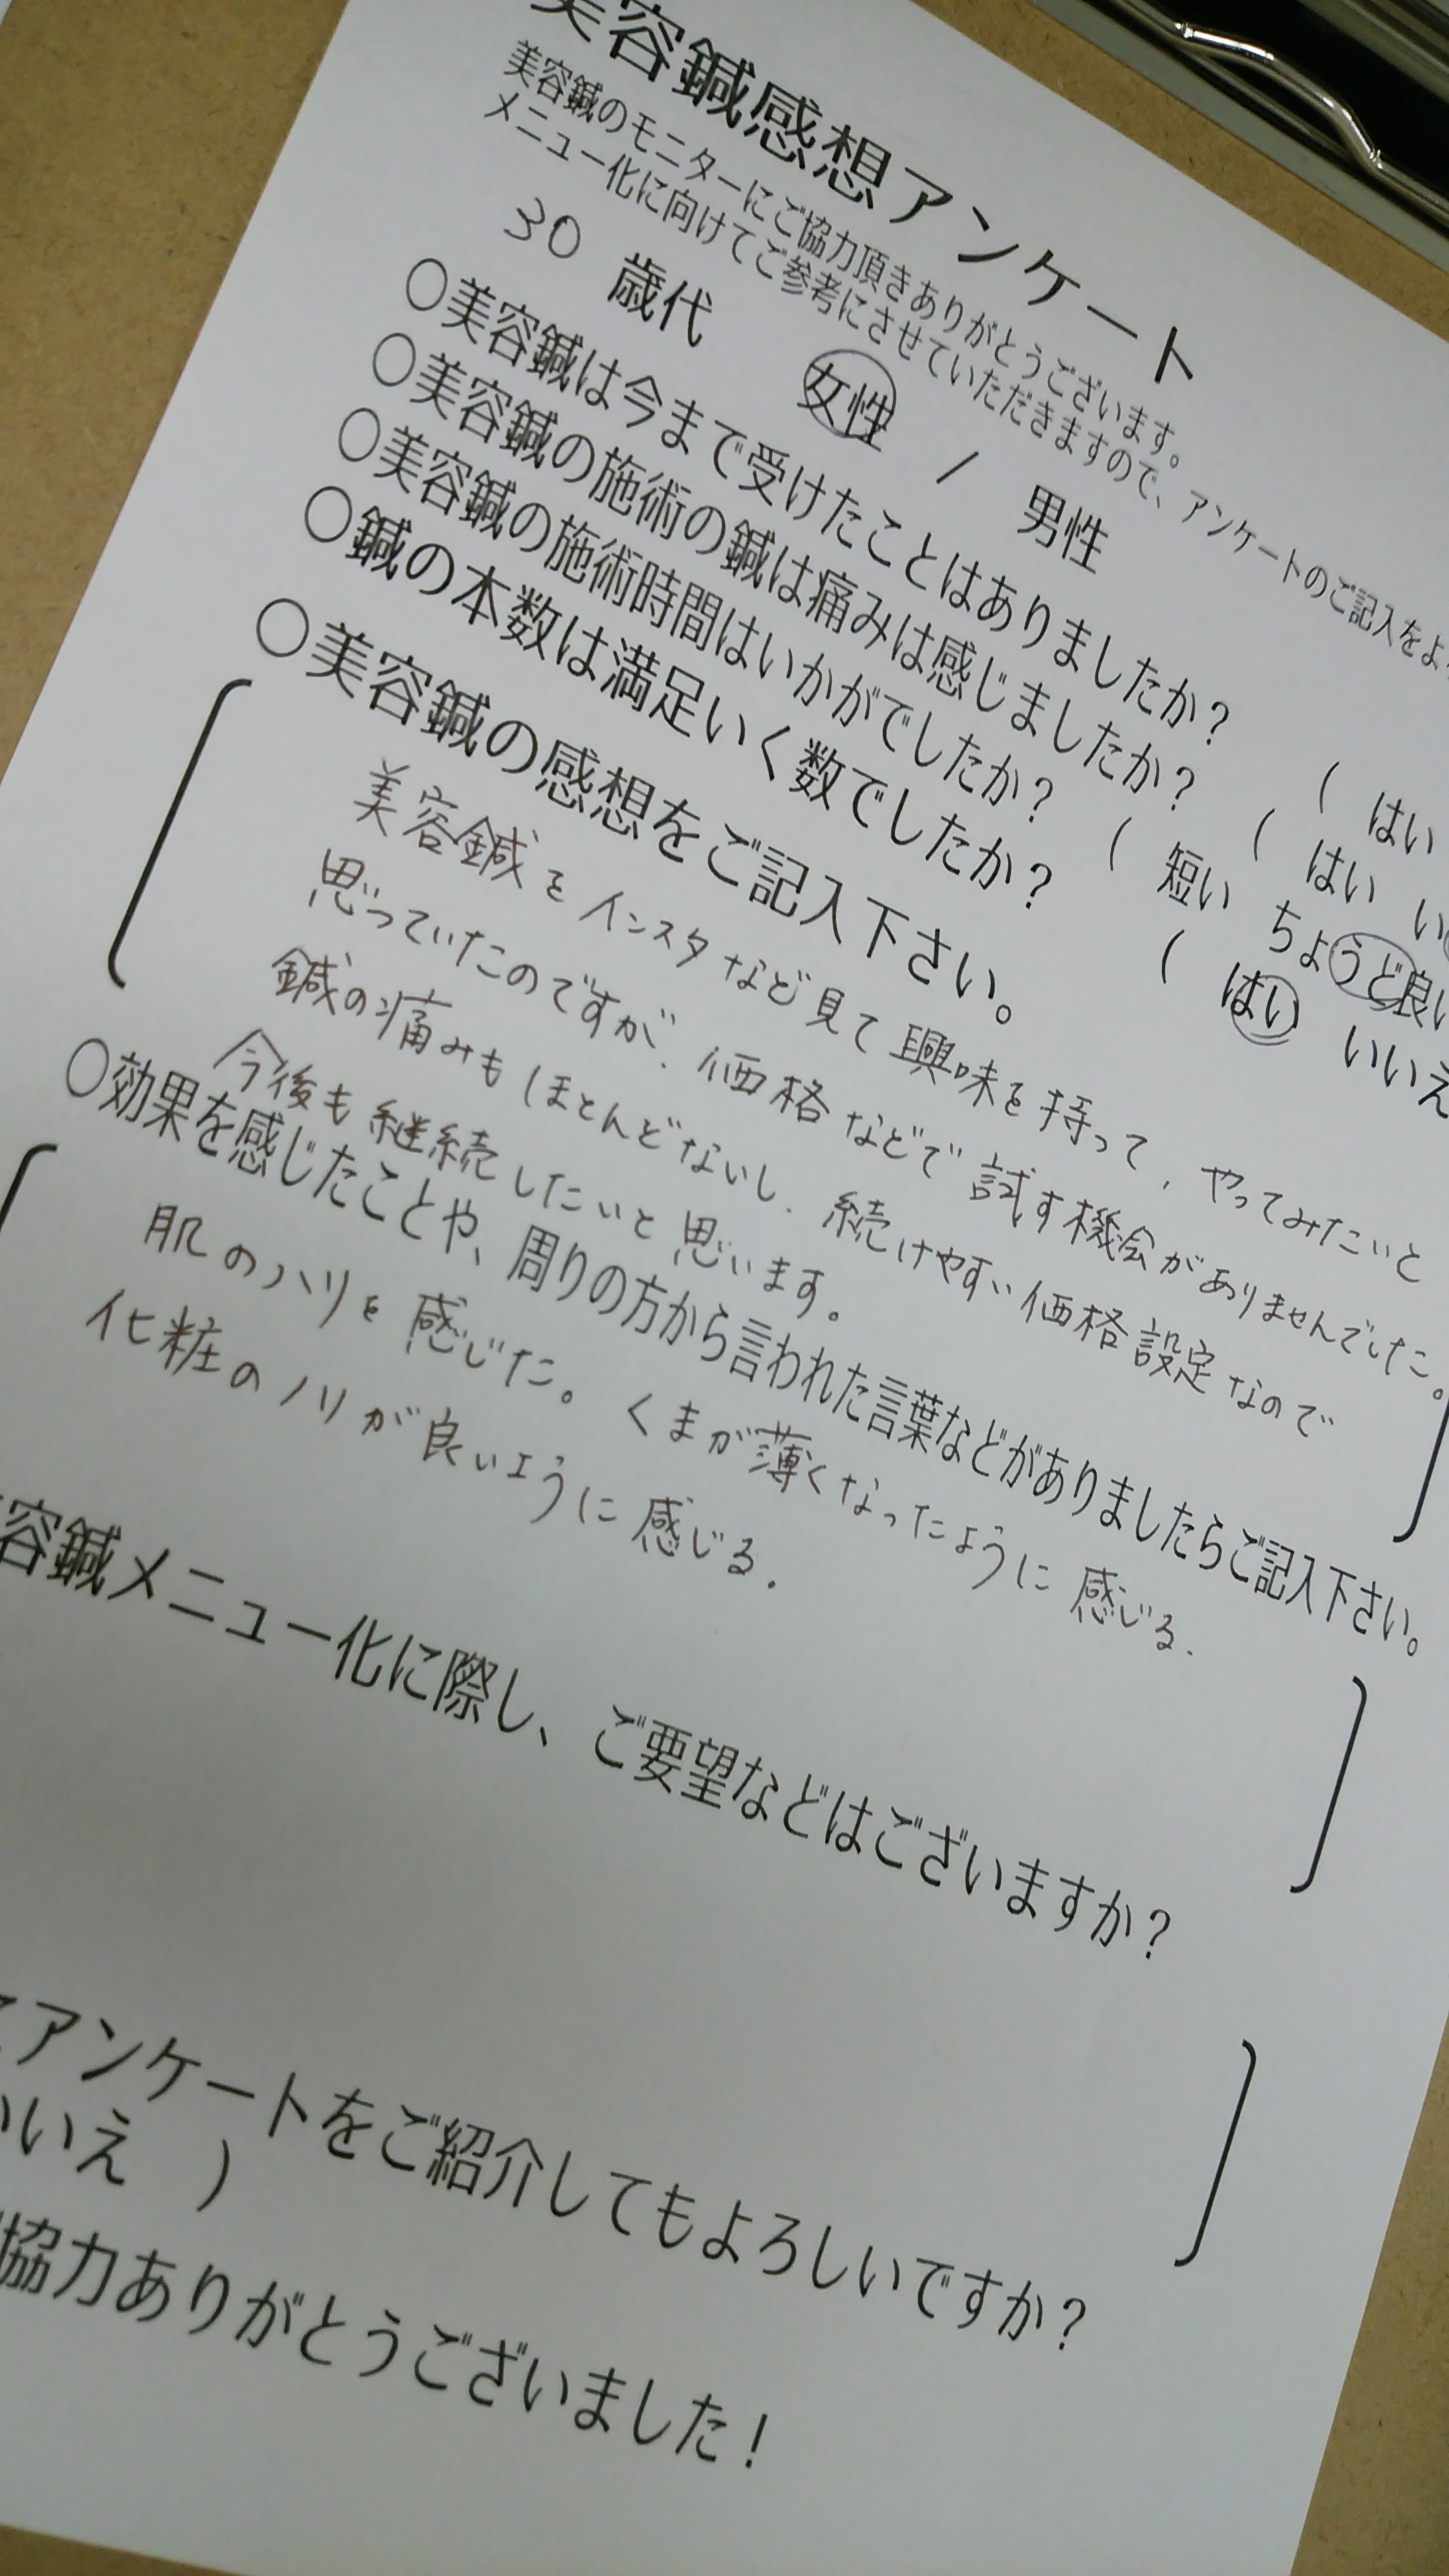 美容鍼感想アンケート
美容鍼のモニターにご協力頂きありがとうございます。
メニュー化に向けてご参考にさせていただきますので、アンケートのご記入をよ
30 歳代 女性 / 男性
○美容鍼は今まで受けたことはありましたか? ( はい
○美容鍼の施術の鍼は痛みは感じましたか? ( はい い
○美容鍼の施術時間はいかがでしたか? ( 短い ちょうど良い
○鍼の本数は満足いく数でしたか? ( はい いいえ
○美容鍼の感想をご記入下さい。
美容鍼をインスタなど見て興味を持って、やってみたいと
思っていたのですが、価格などで試す機会がありませんでした。
鍼の痛みもほとんどないし、続けやすい価格設定なので
今後も継続したいと思います。
○効果を感じたことや、周りの方から言われた言葉などがありましたらご記入下さい。
肌のハリを感じた。くまが薄くなったように感じる.
化粧のノリが良いように感じる.
容鍼メニュー化に際し、ご要望などはございますか?
てアンケートをご紹介してもよろしいですか?
いいえ )
協力ありがとうございました!